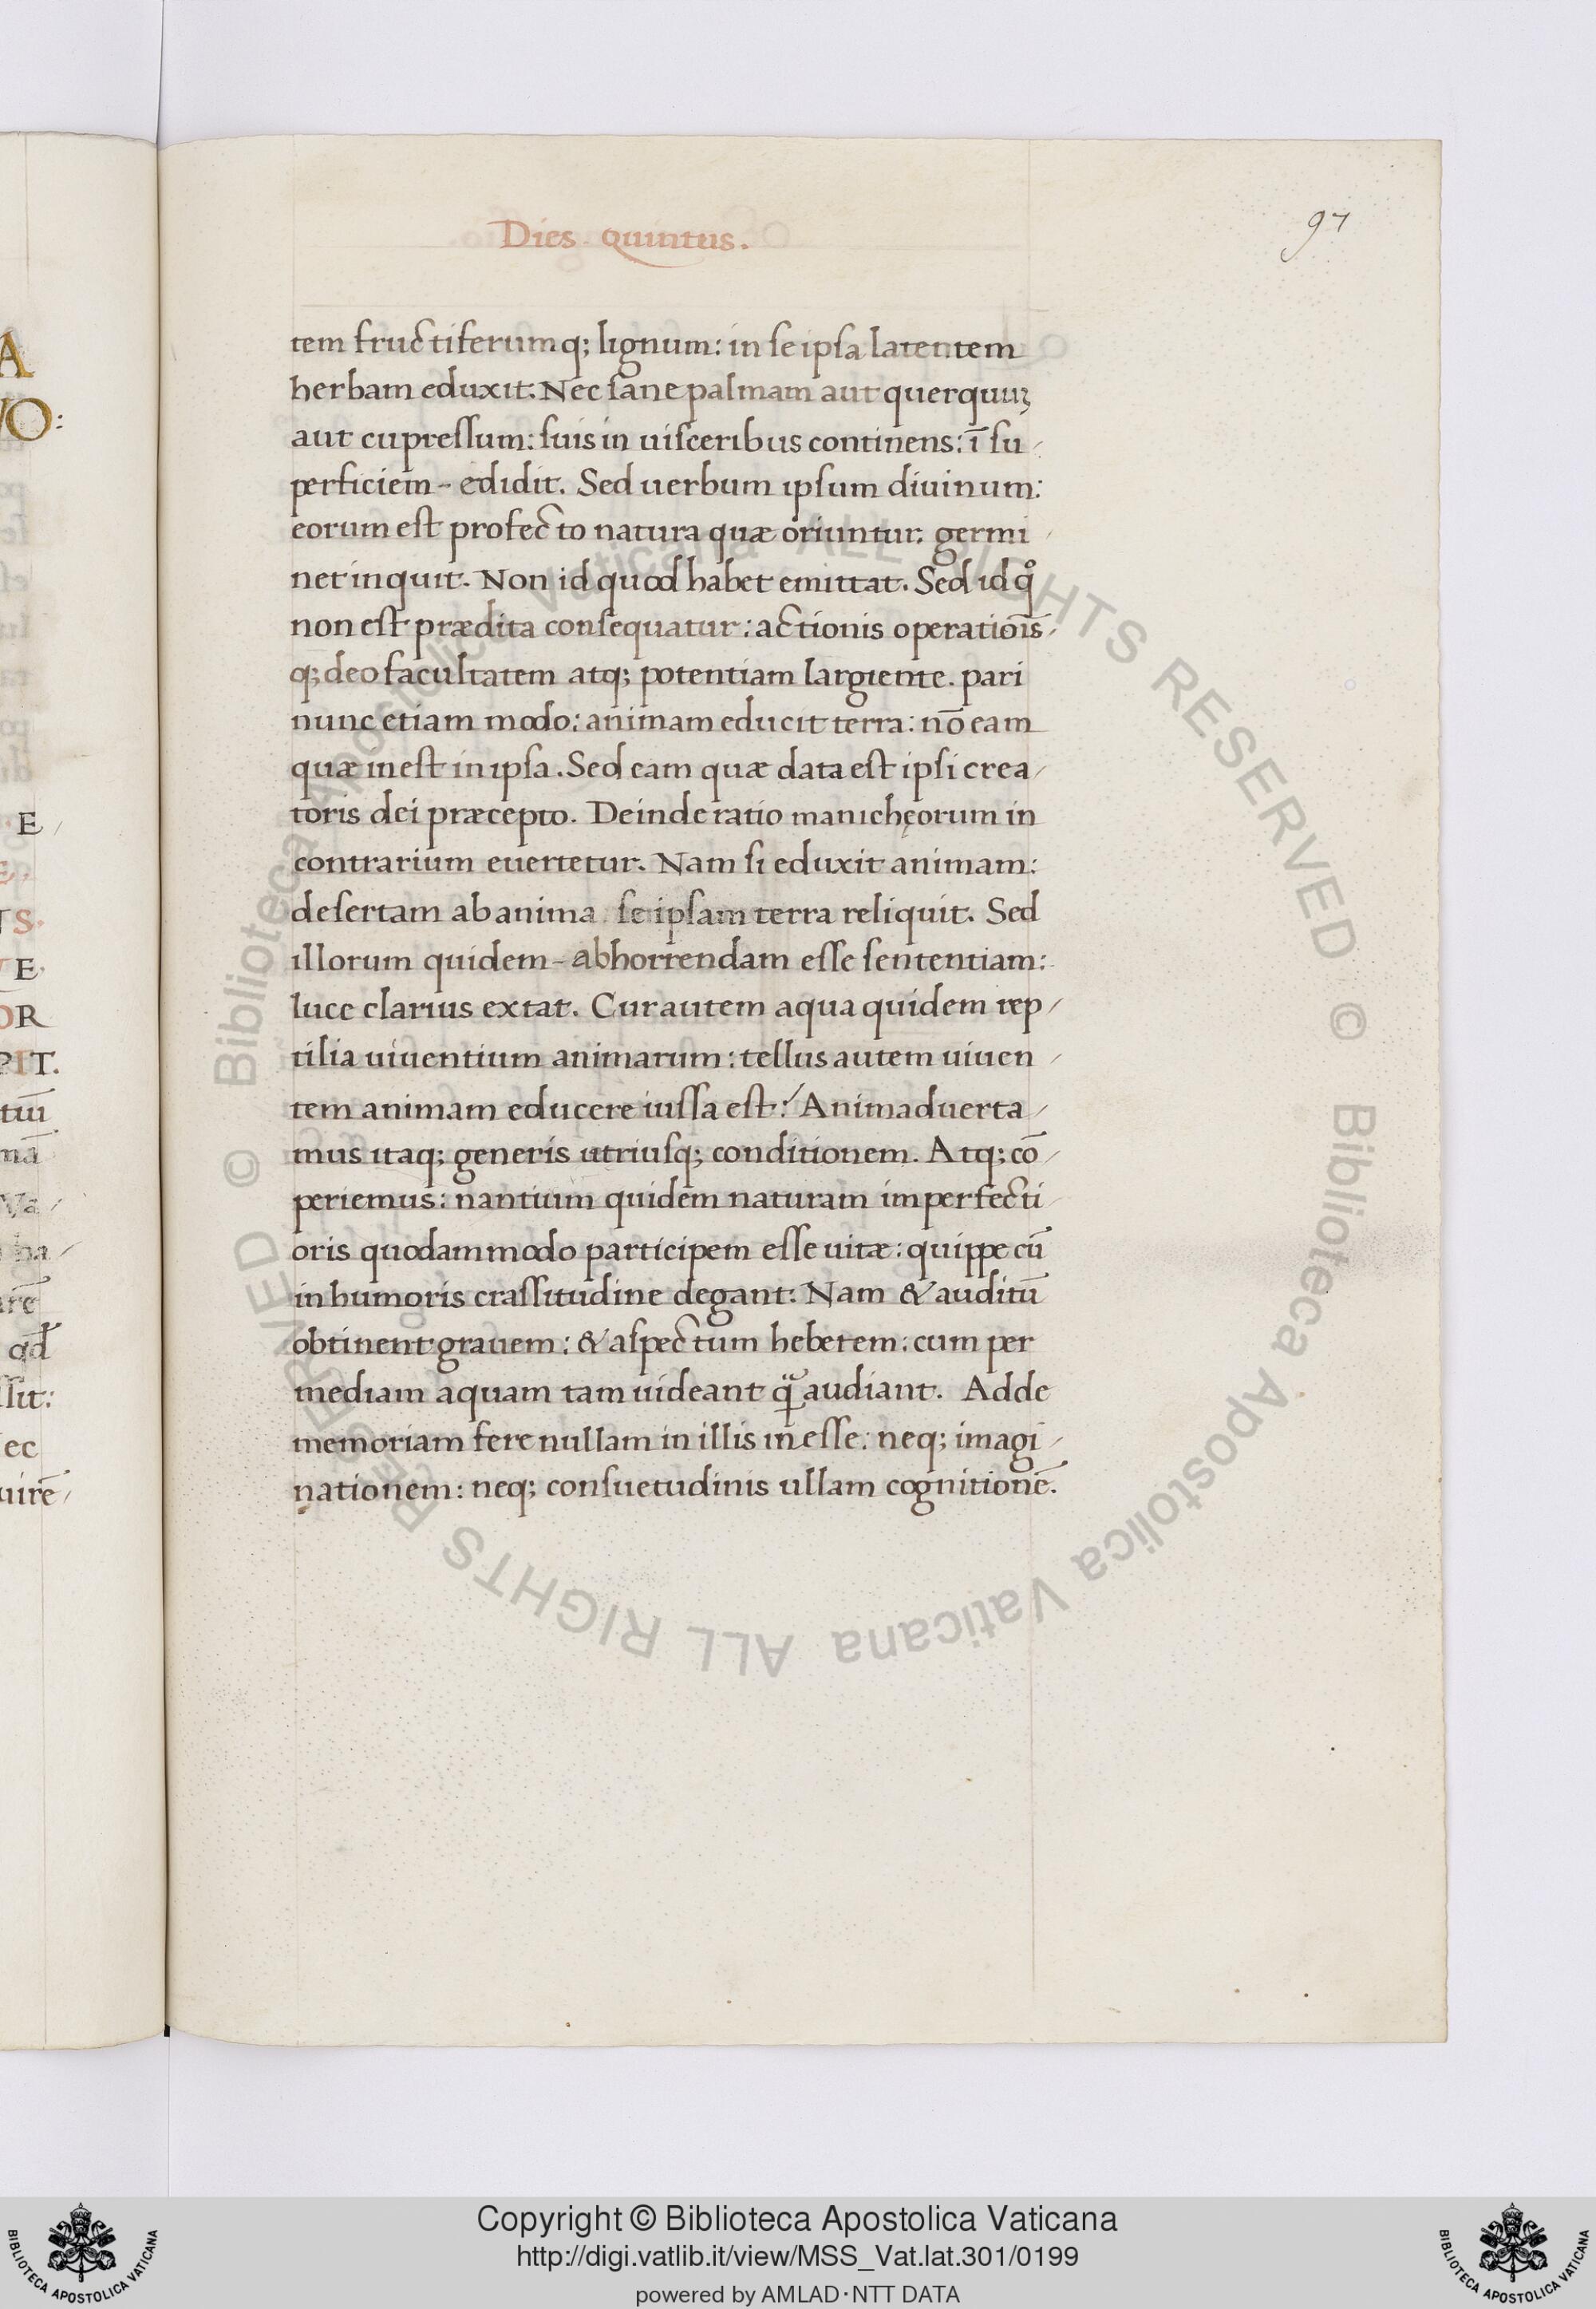 Dies quintus.
97
tem fructiferumq; lignum: in se ipsa latentem
herbam eduxit. Nec sane palmam aut querquuꝫ
aut cupressum: suis in uisceribus continens: ī su⸝
perficiem - edidit. Sed uerbum ipsum diuinum:
eorum est profecto natura quæ oriuntur. germi⸝
net inquit. Non id quod habet emittat. Sed id qͦ
non est prædita consequatur: actionis operatiōis⸝
q; deo facultatem atq; potentiam largiente. pari
nunc etiam modo: animam educit terra: nō eam
quæ inest in ipsa. Sed eam quæ data est ipsi crea⸝
toris dei præcepto. Deinde ratio manichęorum in
contrarium euertetur. Nam si eduxit animam:
desertam ab anima. se ipsam terra reliquit. Sed
illorum quidem - abhorrendam esse sententiam:
luce clarius extat. Cur autem aqua quidem rep⸝
tilia uiuentium animarum: tellus autem uiuen⸝
tem animam educere iussa est? Animaduerta⸝
mus itaq; generis utriusq; conditionem. Atq; cō⸝
periemus: nantium quidem naturam imperfecti⸝
oris quodammodo participem esse uitæ: quippe cū
in humoris crassitudine degant: Nam & auditū
obtinent grauem: & aspectum hebetem: cum per
mediam aquam tam uideant q̈ꝫ audiant. Adde
memoriam fere nullam in illis inesse: neq; imagi⸝
nationem: neq; consuetudinis ullam cognitionē.
A
VO:
E⸝
E
TS.
E
OR
PIT.
tuū
mā
Va⸝
ha⸝
irē
qd
ssit:
ec
uirē⸝
© Biblioteca Apostolica Vaticana ALL RIGHTS RESERVED © Biblioteca Apostolica Vaticana ALL RIGHTS RESERVED
Copyright © Biblioteca Apostolica Vaticana
http://digi.vatlib.it/view/MSS_Vat.lat.301/0199
powered by AMLAD·NTT DATA
BIBLIOTECA APOSTOLICA VATICANA
BIBLIOTECA APOSTOLICA VATICANA